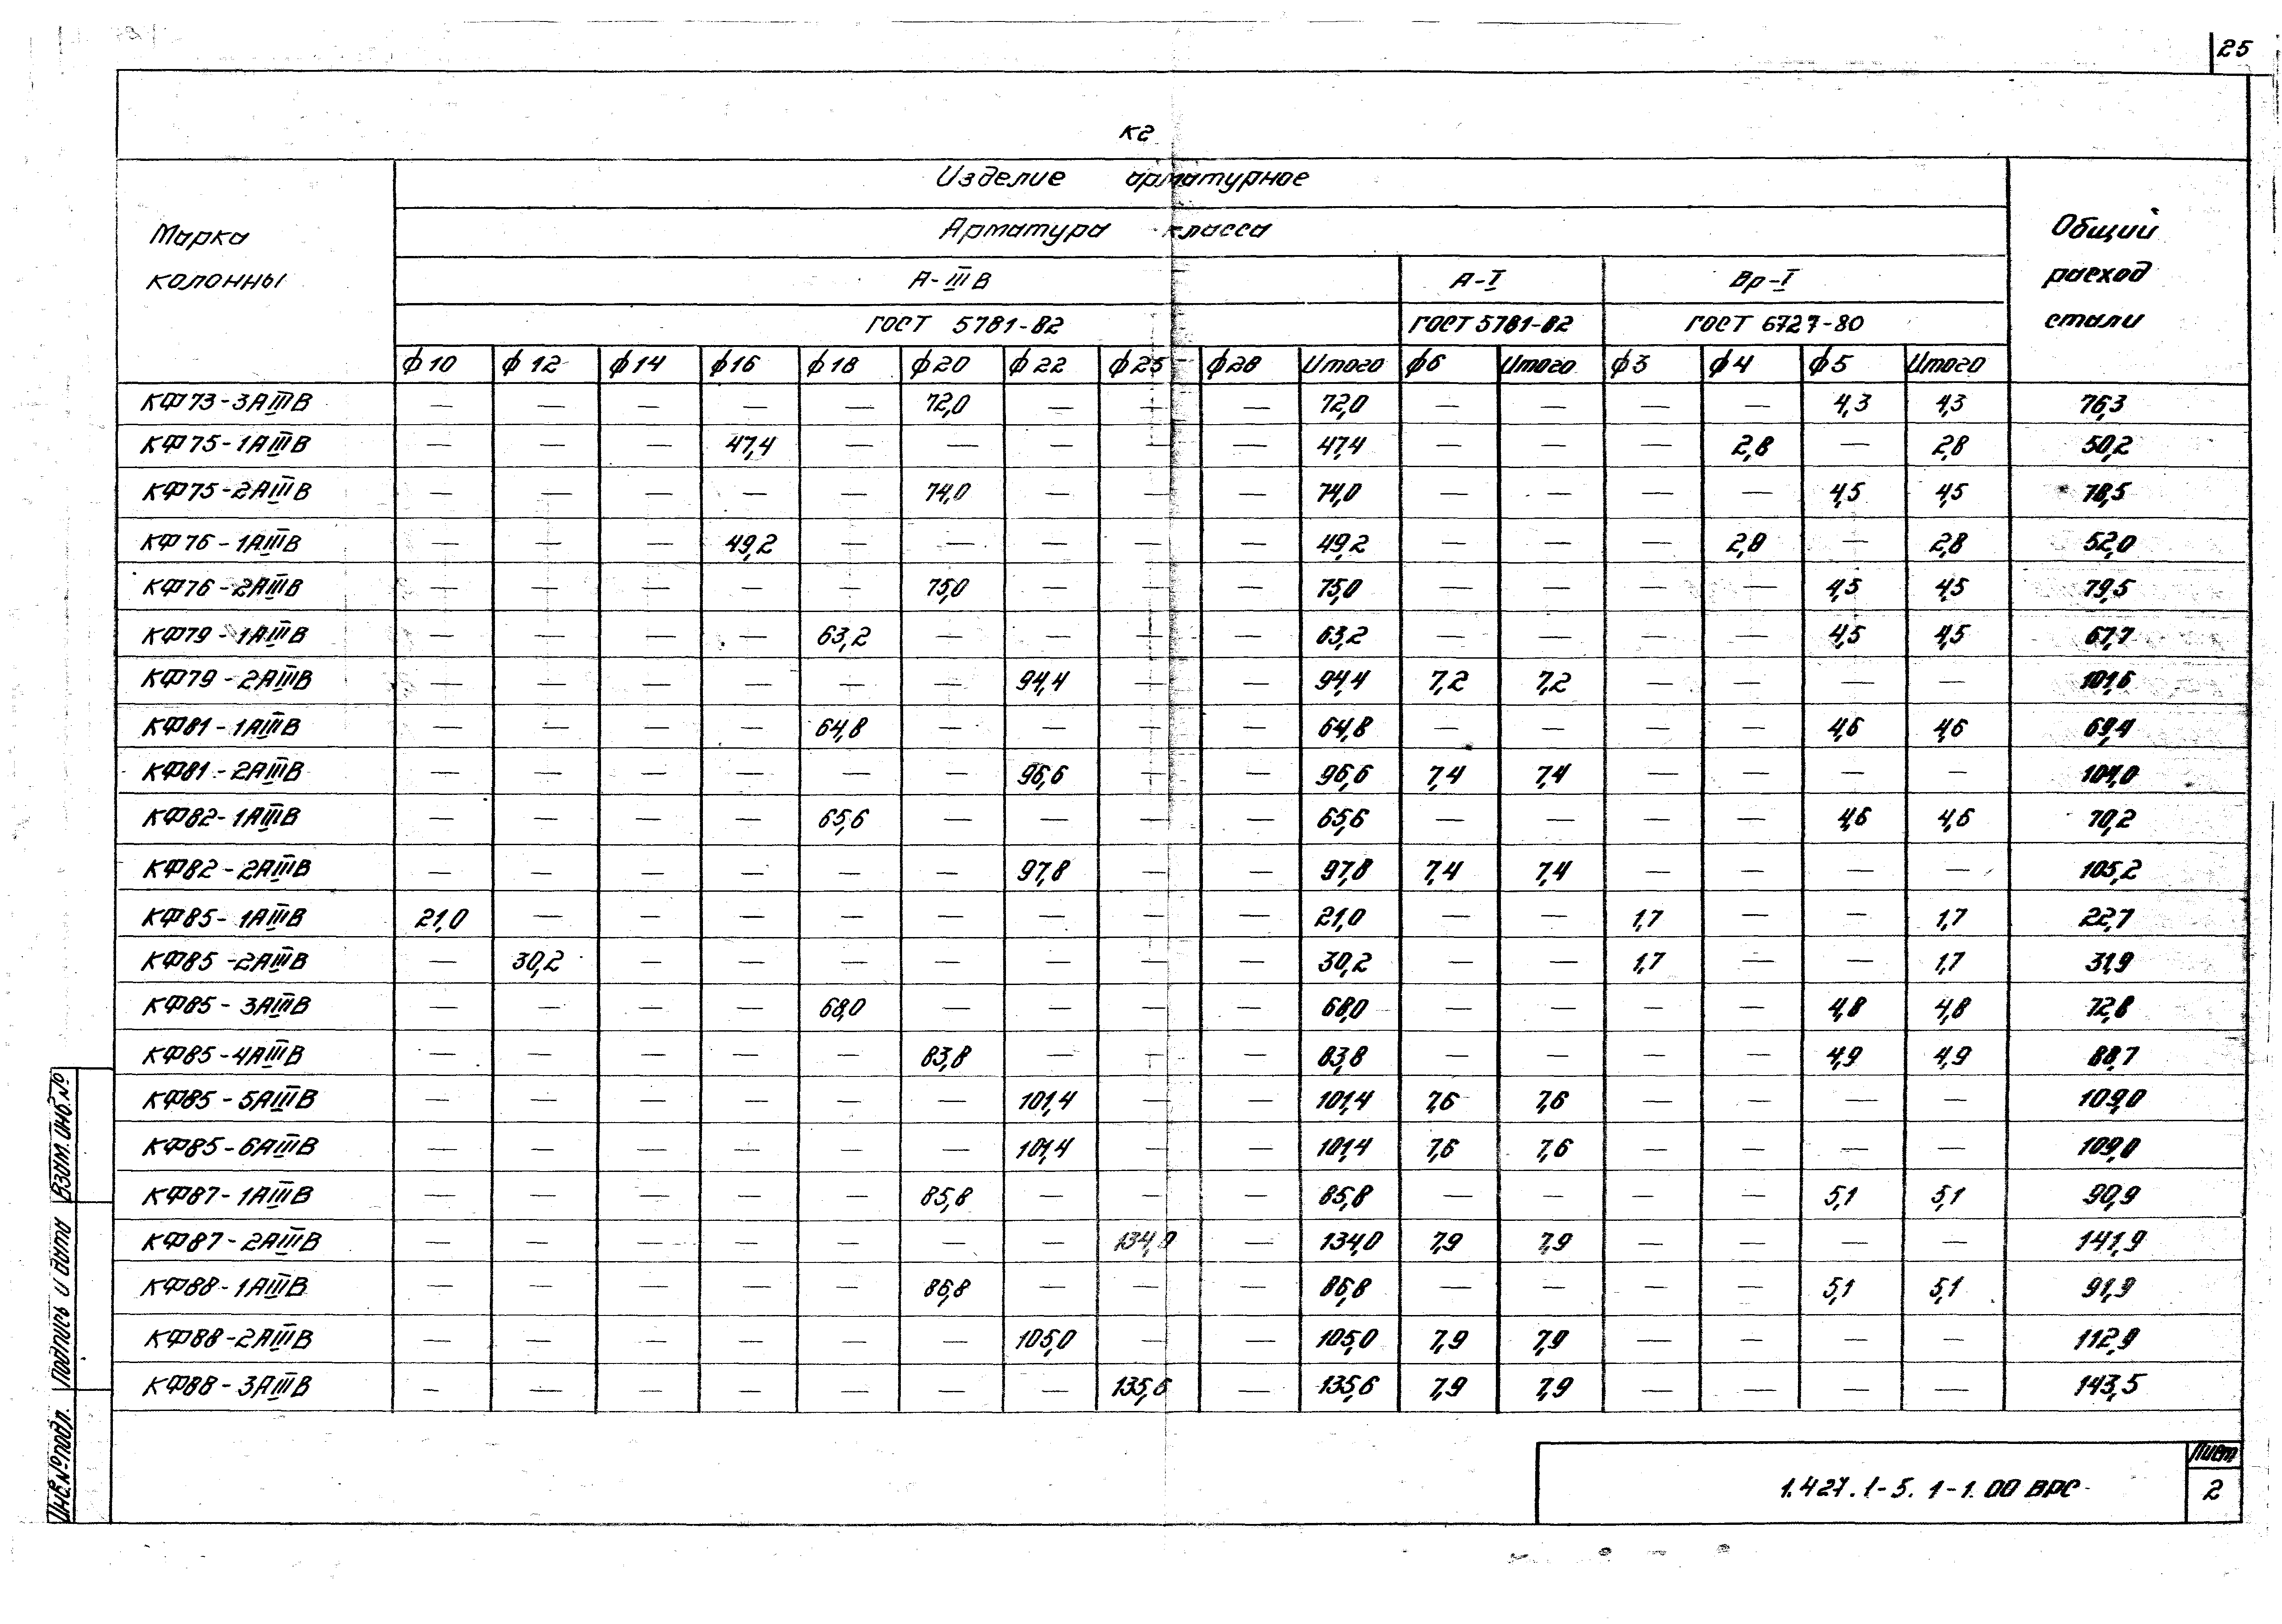 25
кг
Марка колонны
Изделие арматурное
Общий расход стали
Арматура класса
А-III В
А-I
Вр-I
ГОСТ 5781-82
ГОСТ 5781-82
ГОСТ 6727-80
ф10 ф12 ф14 ф16 ф18 ф20 ф22 ф25 ф28 Итого ф6 Итого ф3 ф4 ф5 Итого
КФ73-3АIIIВ — — — — — 72,0 — — — 72,0 — — — — 4,3 4,3 76,3
КФ75-1АIIIВ — — — 47,4 — — — — — 47,4 — — — 2,8 — 2,8 50,2
КФ75-2АIIIВ — — — — — 74,0 — — — 74,0 — — — — 4,5 4,5 78,5
КФ76-1АIIIВ — — — 49,2 — — — — — 49,2 — — — 2,8 — 2,8 52,0
КФ76-2АIIIВ — — — — — 75,0 — — — 75,0 — — — — 4,5 4,5 79,5
КФ79-1АIIIВ — — — — 63,2 — — — — 63,2 — — — — 4,5 4,5 67,7
КФ79-2АIIIВ — — — — — — 94,4 — — 94,4 7,2 7,2 — — — — 101,6
КФ81-1АIIIВ — — — — 64,8 — — — — 64,8 — — — — 4,6 4,6 69,4
КФ81-2АIIIВ — — — — — — 96,6 — — 96,6 7,4 7,4 — — — — 104,0
КФ82-1АIIIВ — — — — 65,6 — — — — 65,6 — — — — 4,6 4,6 70,2
КФ82-2АIIIВ — — — — — — 97,8 — — 97,8 7,4 7,4 — — — — 105,2
КФ85-1АIIIВ 21,0 — — — — — — — — 21,0 — — 1,7 — — 1,7 22,7
КФ85-2АIIIВ — 30,2 — — — — — — — 30,2 — — 1,7 — — 1,7 31,9
КФ85-3АIIIВ — — — — 68,0 — — — — 68,0 — — — — 4,8 4,8 72,8
КФ85-4АIIIВ — — — — — 83,8 — — — 83,8 — — — — 4,9 4,9 88,7
КФ85-5АIIIВ — — — — — — 101,4 — — 101,4 7,6 7,6 — — — — 109,0
КФ85-6АIIIВ — — — — — — 101,4 — — 101,4 7,6 7,6 — — — — 109,0
КФ87-1АIIIВ — — — — — 85,8 — — — 85,8 — — — — 5,1 5,1 90,9
КФ87-2АIIIВ — — — — — — — 134,0 — 134,0 7,9 7,9 — — — — 141,9
КФ88-1АIIIВ — — — — — 86,8 — — — 86,8 — — — — 5,1 5,1 91,9
КФ88-2АIIIВ — — — — — — 105,0 — — 105,0 7,9 7,9 — — — — 112,9
КФ88-3АIIIВ — — — — — — — 135,6 — 135,6 7,9 7,9 — — — — 143,5
Взам. инв. №
Подпись и дата
Инв. № подл.
1.427.1-5. 1-1.00 ВРС
Лист
2